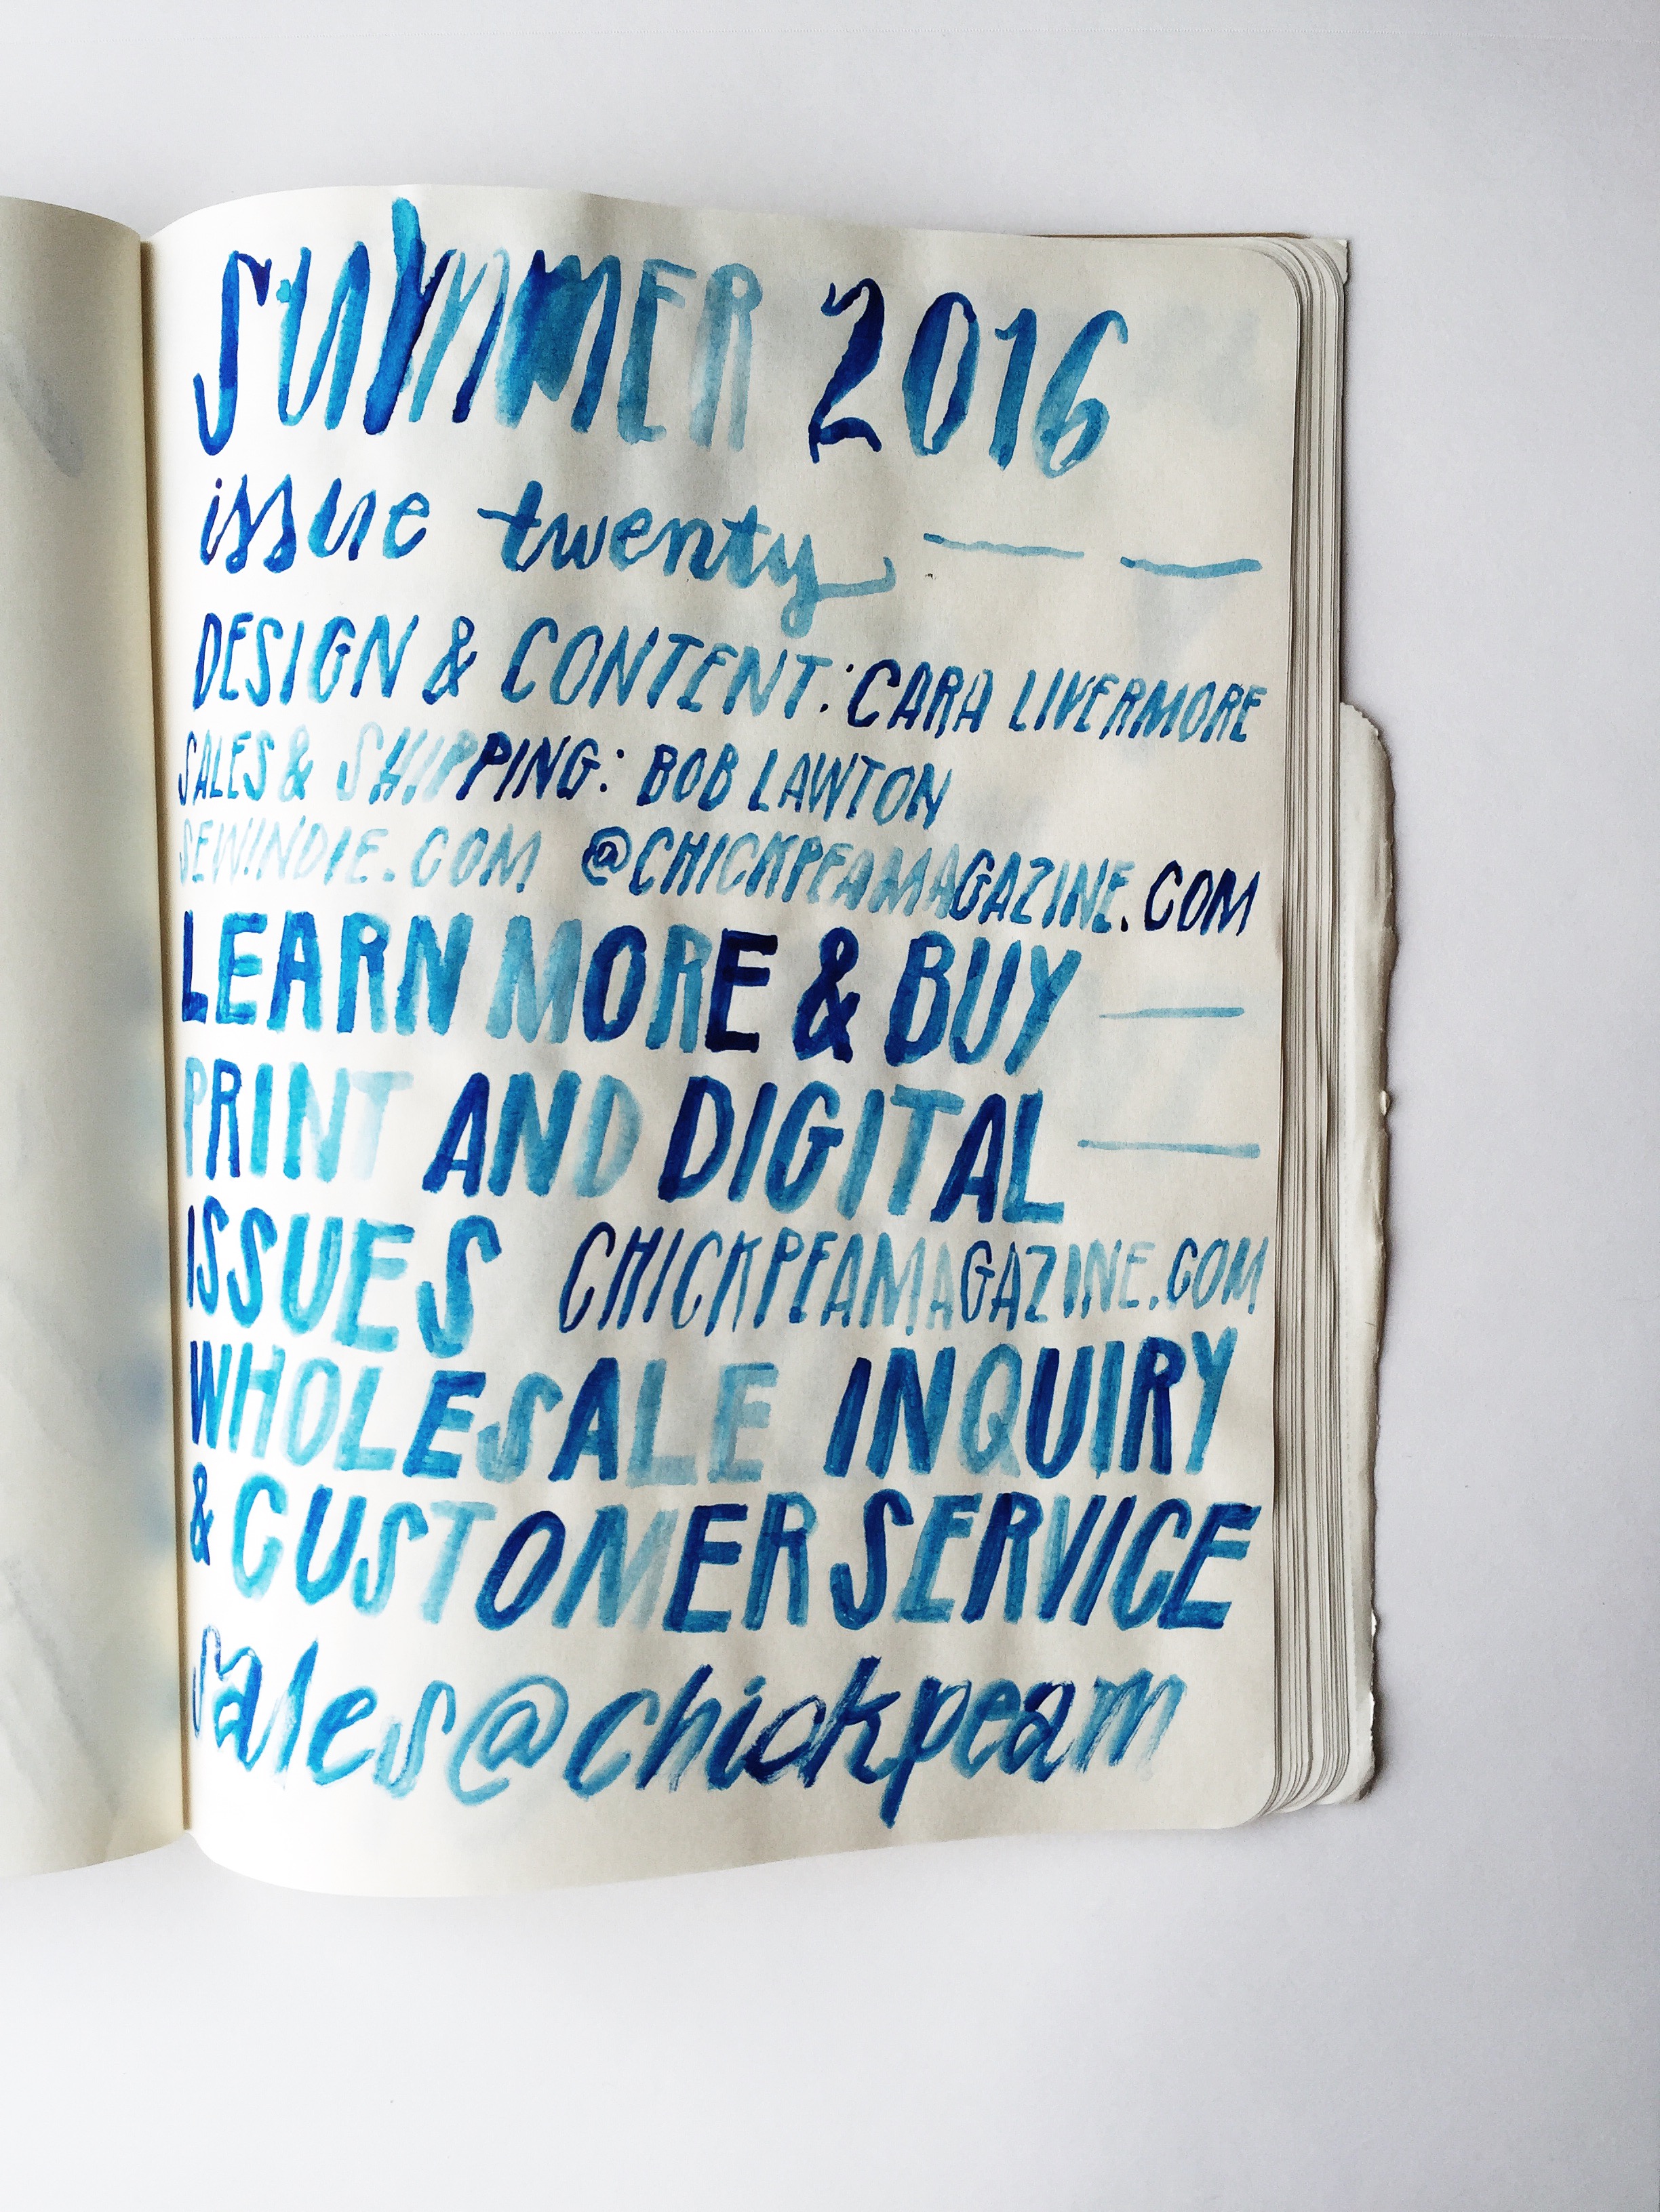 SUMMER 2016
issue twenty
DESIGN & CONTENT: CARA LIVERMORE
SALES & SHIPPING: BOB LAWTON
SEWINDIE.COM @CHICKPEAMAGAZINE.COM
LEARN MORE & BUY
PRINT AND DIGITAL
ISSUES CHICKPEAMAGAZINE.COM
WHOLESALE INQUIRY
& CUSTOMER SERVICE
sales@chickpeam